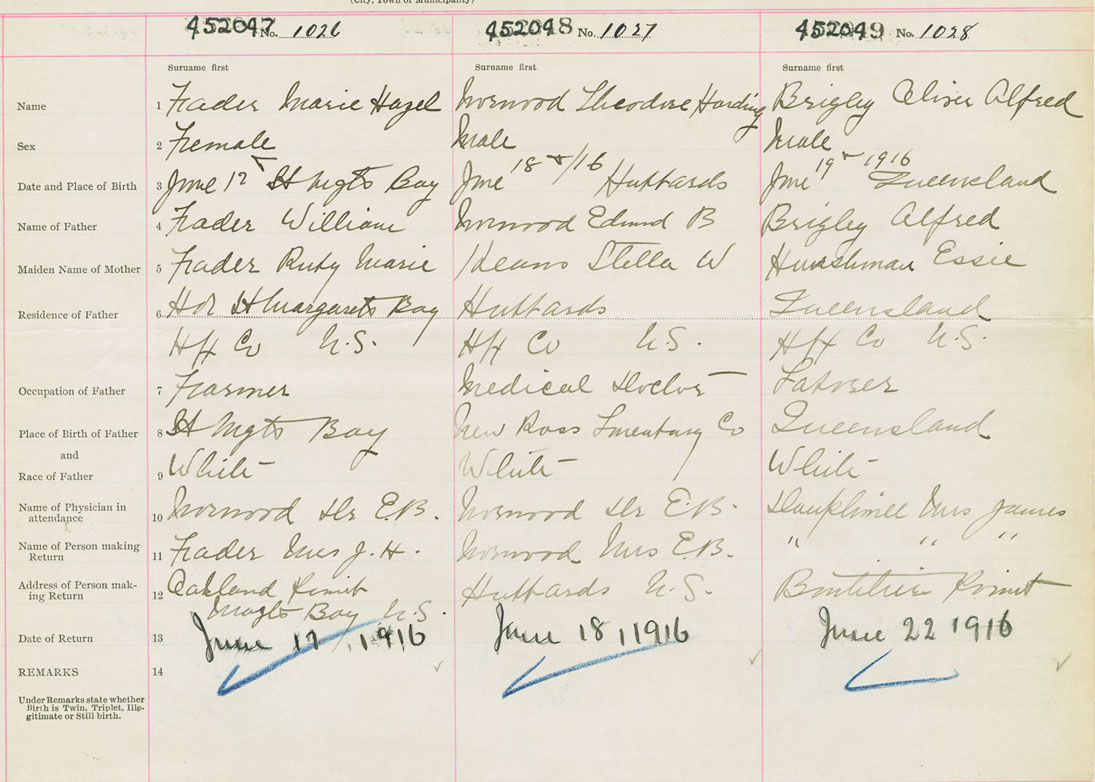 (City, Town or Municipality)
452047 No. 1026 452048 No. 1027 452049 No. 1028
Surname first Surname first Surname first
Name 1 Frader Marie Hazel Norwood Theodore Harding Brigley Oliver Alfred
Sex 2 Female Male Male
Date and Place of Birth 3 June 12 St Mgts Bay June 18 /16 Hubbards June 19 1916 Queensland
Name of Father 4 Frader William Norwood Edmund B Brigley Alfred
Maiden Name of Mother 5 Frader Ruby Marie Keans Stella W Essie
Residence of Father 6 Hd St Margarets Bay Hubbards Queensland
Hfx Co N.S. Hfx Co N.S. Hfx Co N.S.
Occupation of Father 7 Farmer Medical Doctor Laborer
Place of Birth of Father 8 St Mgts Bay New Ross Lunenburg Co Queensland
and
Race of Father 9 White White White
Name of Physician in
attendance 10 Norwood Dr E.B. Norwood Dr E.B. Dauphinee Mrs James
Name of Person making
Return 11 Frader Mrs J. H. Norwood Mrs E.B. " " "
Address of Person mak-
ing Return 12 Oakland Point Hubbards N.S. Boutilier Point
Magts Bay N.S.
Date of Return 13 June 17, 1916 June 18, 1916 June 22 1916
REMARKS 14
Under Remarks state whether
Birth is Twin, Triplet, Ille-
gitimate or Still-birth.